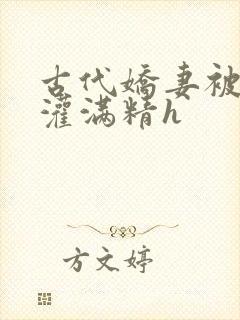 古代嬌妻被
灌滿精h
方文婷